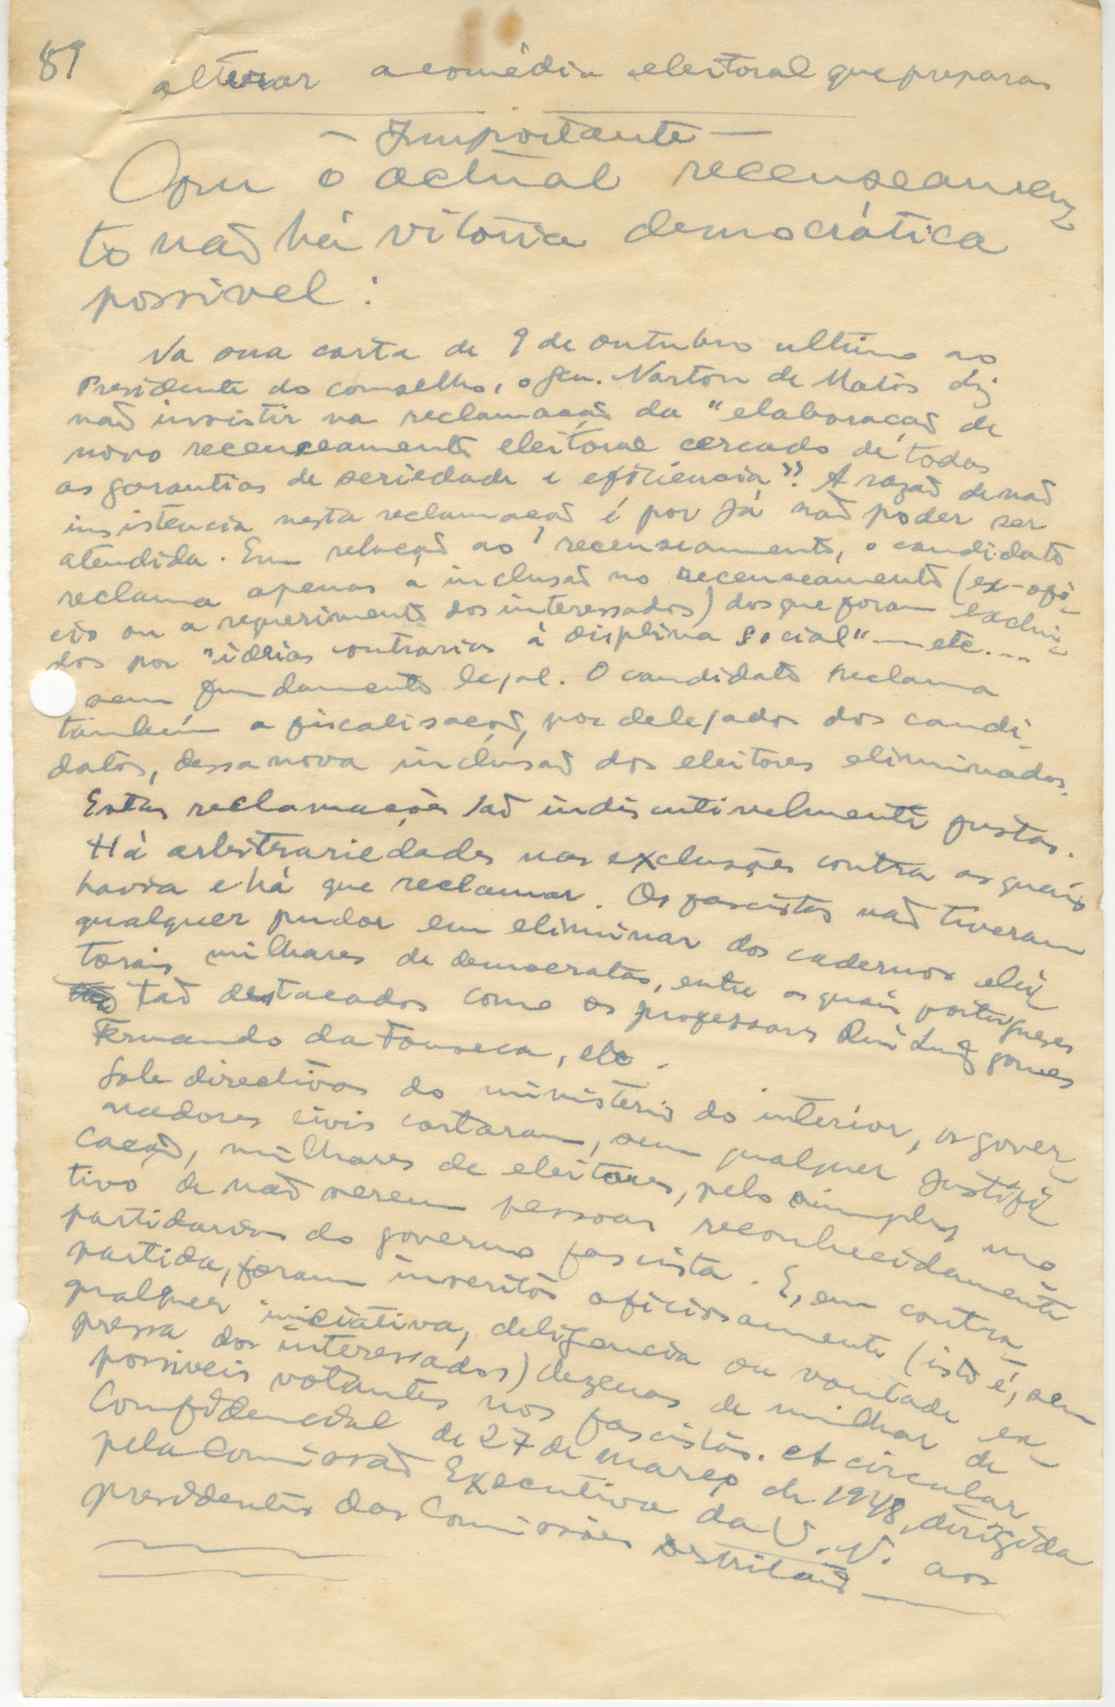 89
alterar a comédia eleitoral que preparam
— Importante —
Com o actual recenseamen
to não há vitória democrática
possivel:
Na sua carta de 9 de outubro ultimo ao
Presidente do conselho, o gen. Norton de Matos diz
não insistir na reclamação da "elaboração de
novo recenseamento eleitoral cercado de todas
as garantias de seriedade e eficiencia"? A razão de não
insistencia nesta reclamação é por já não poder ser
atendida. Em relação ao recenseamento, o candidato
reclama apenas a inclusão no recenseamento (ex-ofi-
cio ou a requerimento dos interessados) dos que foram exclui-
dos por "ideias contrarias à displina social" — etc...
sem fundamento legal. O candidato reclama
também a fiscalisação, por delegados dos candi-
datos, dessa nova inclusão dos eleitores eliminados.
Estas reclamações são indiscutivelmente justas.
Há arbitrariedades nas exclusões contra as quais
havia e há que reclamar. Os fascistas não tiveram
qualquer pudor em eliminar dos cadernos elei
torais milhares de democratas, entre os quais portugueses
tão destacados como os professores Rui Luiz gomes
Fernando da Fonseca, etc.
Sob directivas do ministerio do interior, os gover
nadores civis cortaram, sem qualquer justifi
cação, milhares de eleitores, pelo simples mo
tivo de não serem pessoas reconhecidamente
partidarias do governo fascista. E, em contra-
partida, foram inscritos oficiosamente (isto é, sem
qualquer iniciativa, deligencia ou vontade ex-
pressa dos interessados) dezenas de milhar de
possiveis votantes nos fascistas. A circular
Confidencial de 27 de março de 1948, dirigida
pela Comissão Executiva da U. N. aos
presidentes das Comissões distritais